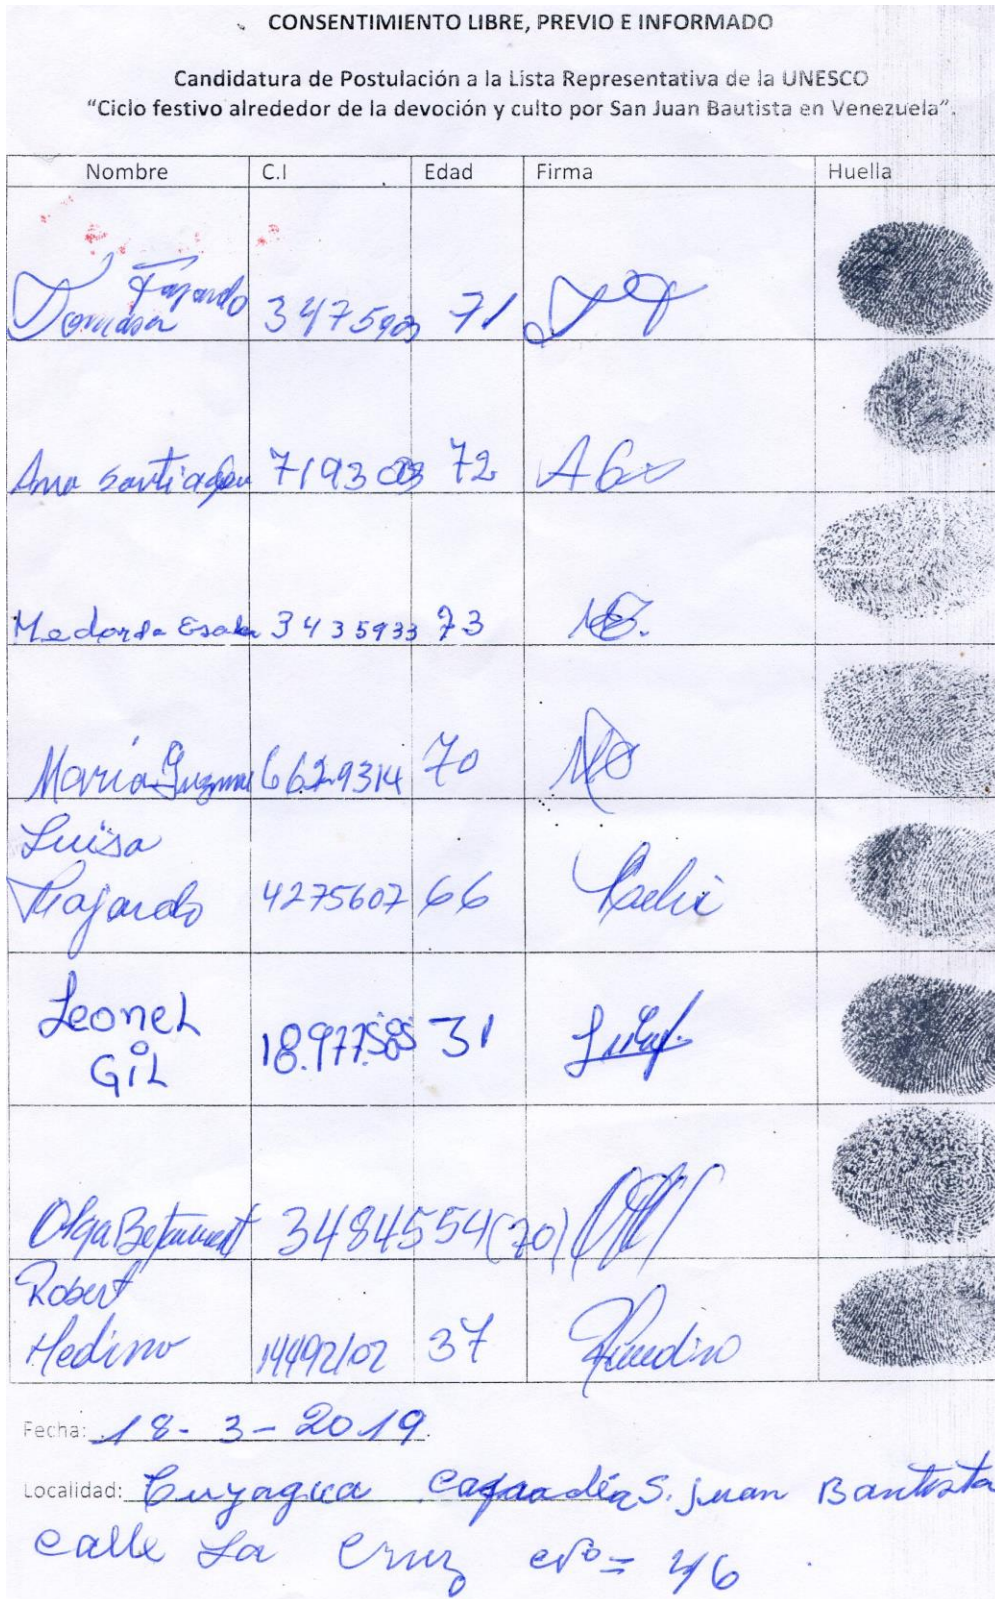 CONSENTIMIENTO LIBRE, PREVIO E INFORMADO
Candidatura de Postulación a la Lista Representativa de la UNESCO
"Ciclo festivo alrededor de la devoción y culto por San Juan Bautista en Venezuela".
Nombre C.I Edad Firma Huella
Fajardo
Tomasa 71
Ana 72
3435933 73
María Guzman 6629314 70
Luisa
Fajardo 4275607 66
Leonel
Gil 31
Olga 3484554 (70)
Robert
Medino 14492102 37
Fecha: 18-3-2019.
Localidad: Cuyagua S. juan Bautista
calle La Cruz Nº = 46